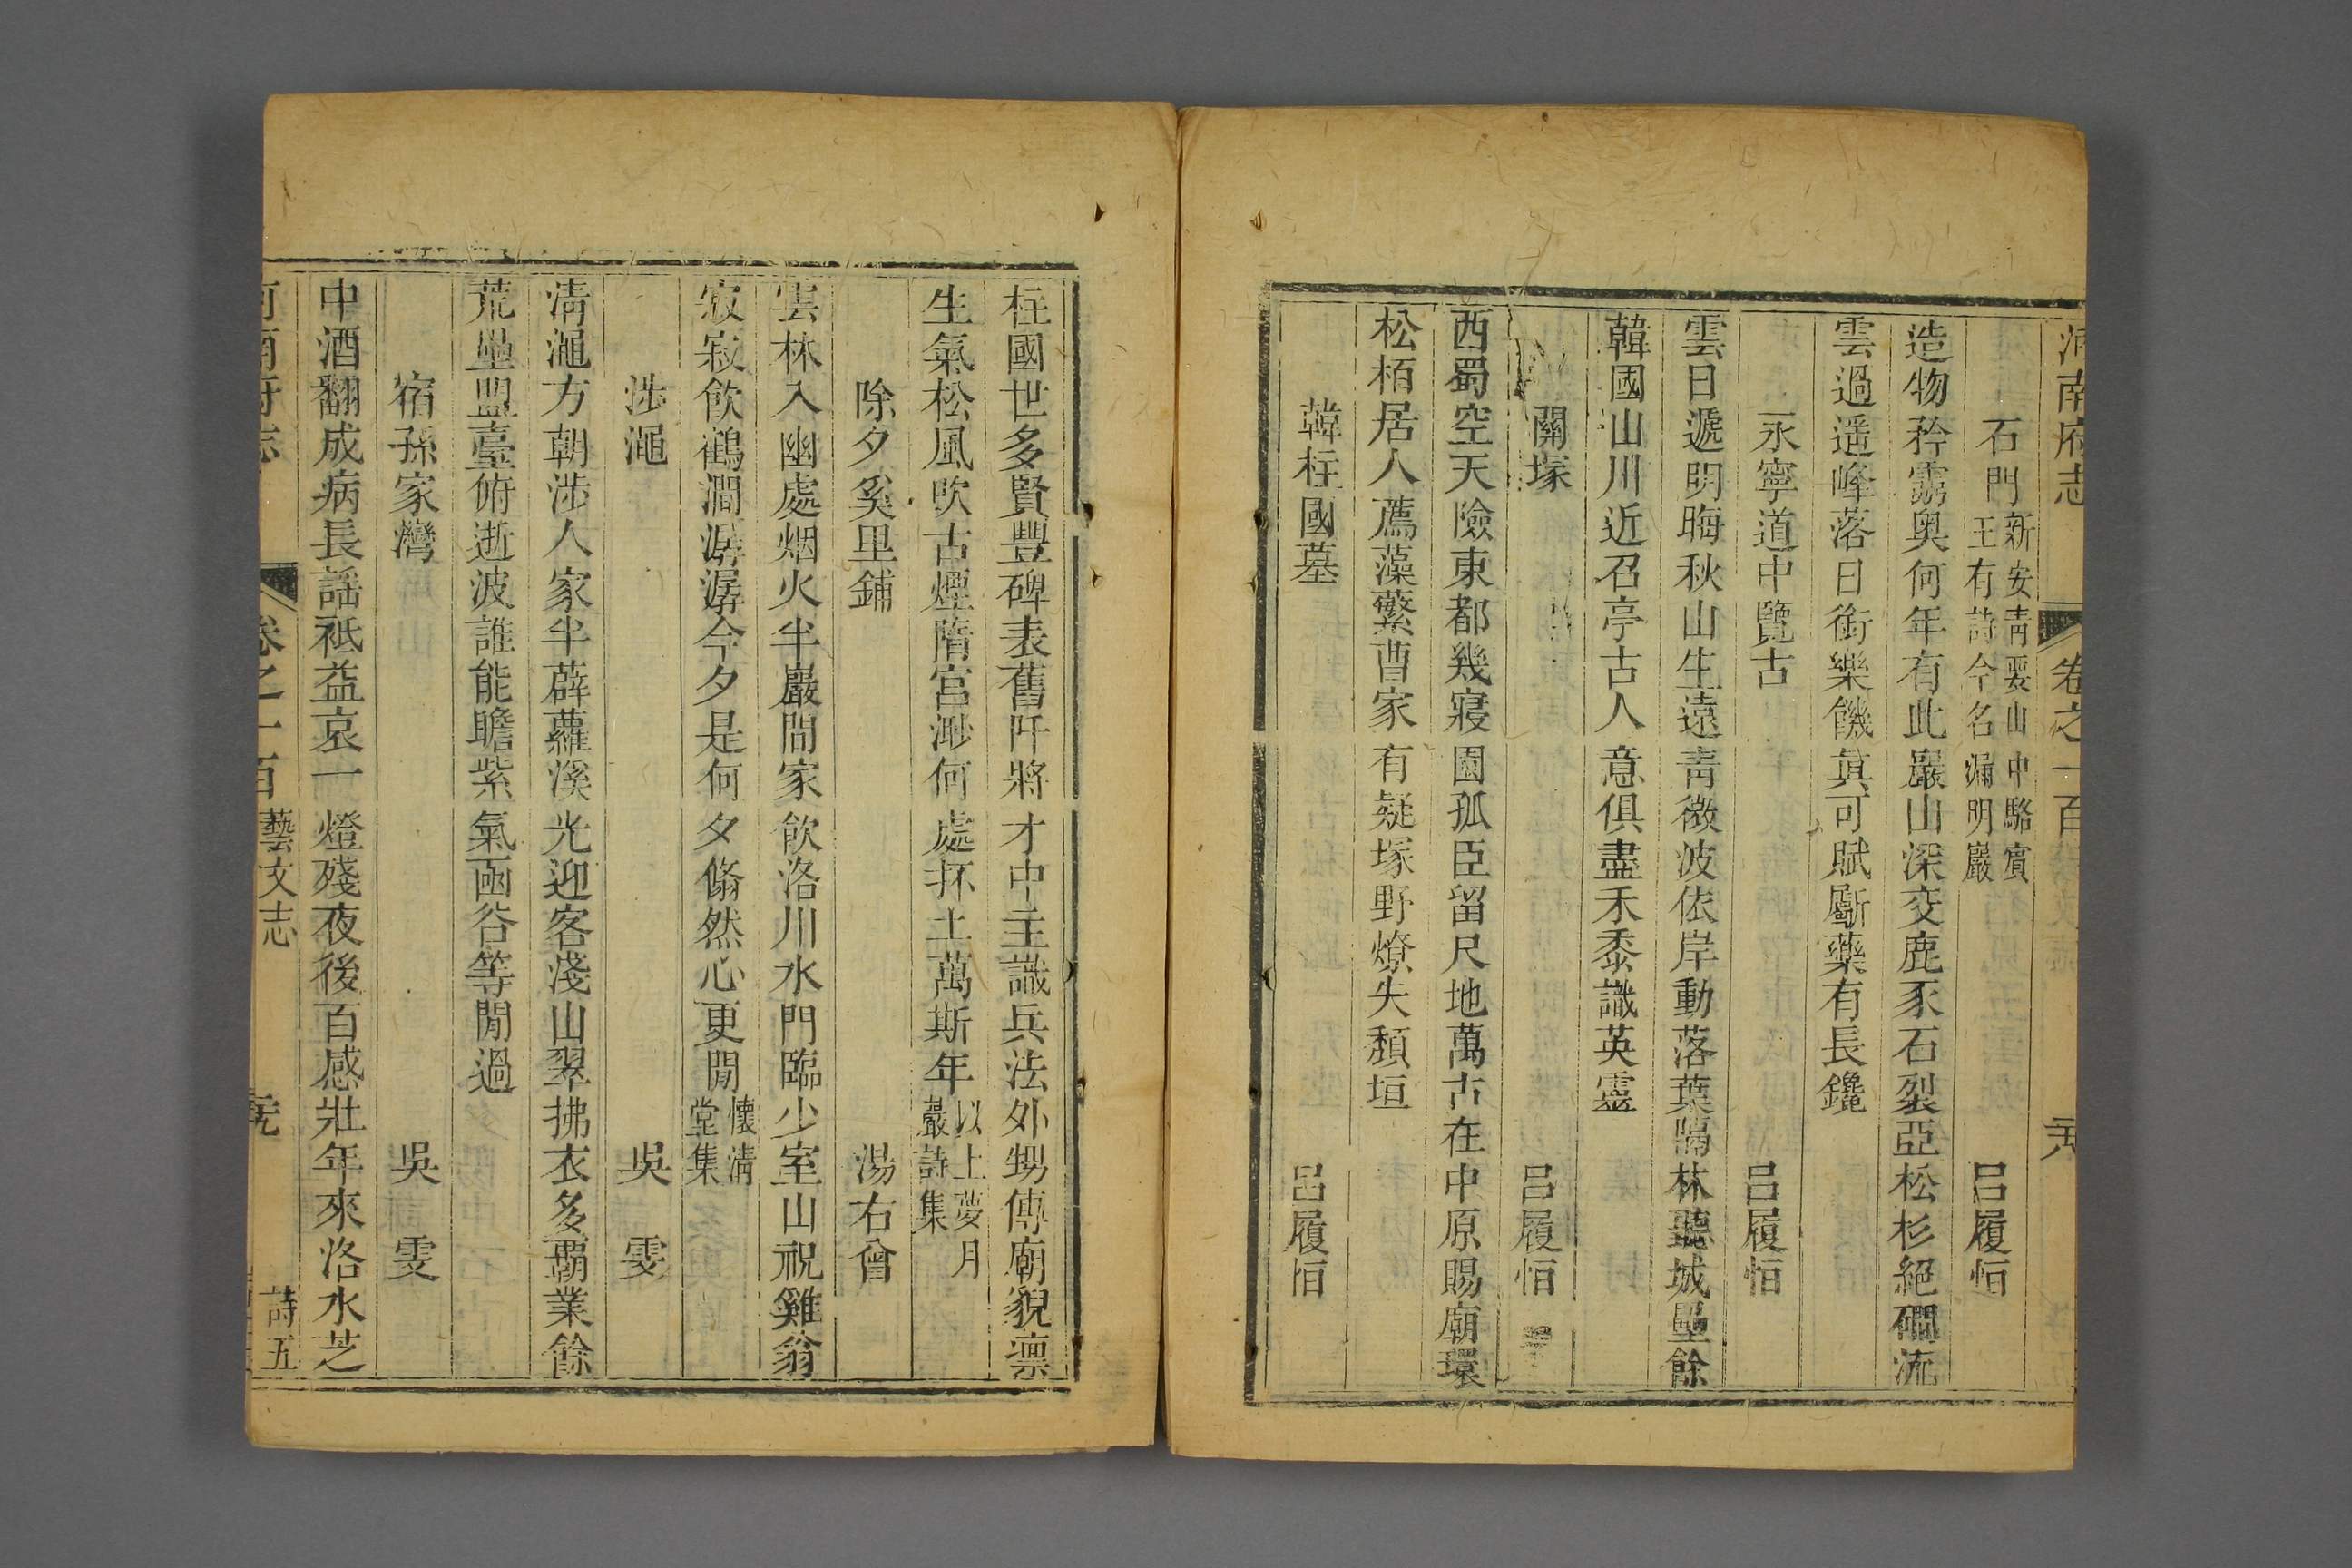 河南府志 卷之一百 六
石門 新安青要山中駱賓王有詩今名漏明巖 呂履恒
造物矜靈奧何年有此巖山深交鹿豕石裂亞松杉絕磵流
雲過遥峰落日銜樂饑真可賦斸藥有長鑱
永寧道中覽古 呂履恒
雲日遞明晦秋山生遠青微波依岸動落葉隔林聽城壘餘
韓國山川近召亭古人意俱盡禾黍識英靈
關塚 呂履恒
西蜀空天險東都幾寢園孤臣留尺地萬古在中原賜廟環
松栢居人薦藻蘩曹家有疑塚野燎失頹垣
韓柱國墓 呂履恒
柱國世多賢豐碑表舊阡將才中主識兵法外甥傳廟貌凛
生氣松風吹古煙隋宮渺何處抔土萬斯年 以上夢月巖詩集
除夕奚里鋪 湯右曾
雲林入幽處烟火半巖間家飲洛川水門臨少室山祝雞翁
寂寂飲鶴澗潺潺今夕是何夕翛然心更閒 懷清堂集
涉澠 吳雯
清澠方朝涉人家半薜蘿溪光迎客淺山翠拂衣多霸業餘
荒壘盟臺俯逝波誰能瞻紫氣函谷等閒過
宿孫家灣 吳雯
中酒翻成病長謡祗益哀一燈殘夜後百感壯年來洛水芝
河南府志 卷之一百 藝文志 詩五